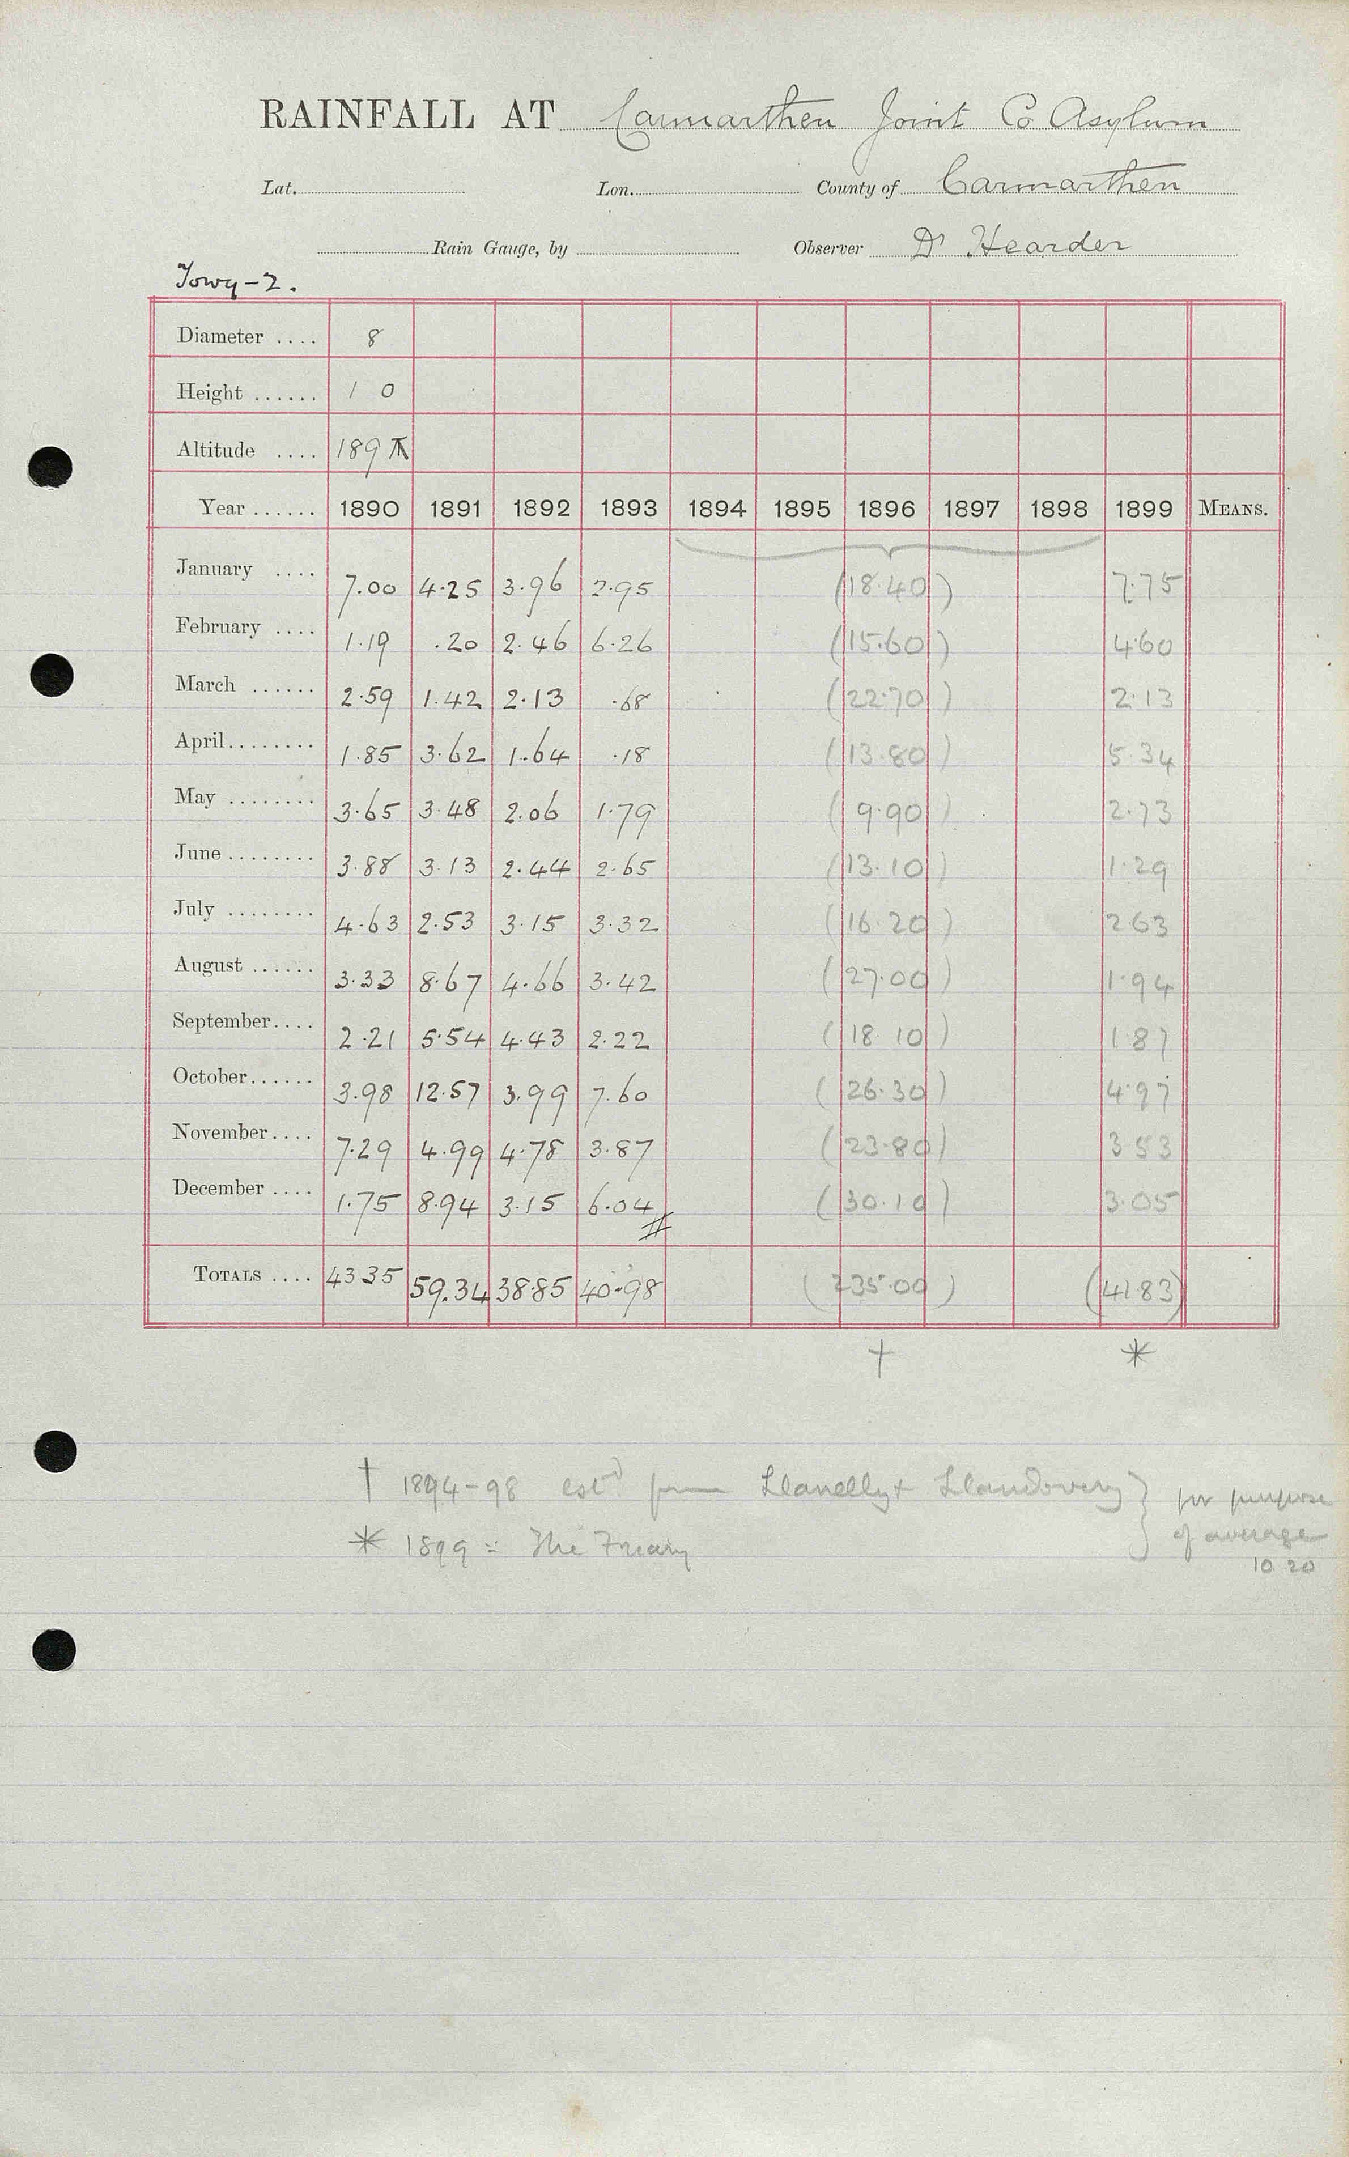 RAINFALL AT Carmarthen Joint Co Asylum
Lat. Lon. County of Carmarthen
Rain Gauge, by Observer Dr Hearder
Towy-2.
Diameter .... 8
Height ...... 1 0
Altitude .... 189
Year ...... 1890 1891 1892 1893 1894 1895 1896 1897 1898 1899 MEANS.
January .... 7.00 4.25 3.96 2.95 (18.40) 7.75
February .... 1.19 .20 2.46 6.26 (15.60) 4.60
March ...... 2.59 1.42 2.13 .68 (22.70) 2.13
April........ 1.85 3.62 1.64 .18 (13.80) 5.34
May ........ 3.65 3.48 2.06 1.79 (9.90) 2.73
June ........ 3.88 3.13 2.44 2.65 (13.10) 1.29
July ........ 4.63 2.53 3.15 3.32 (16.20) 2 63
August ...... 3.33 8.67 4.66 3.42 (27.00) 1.94
September.... 2.21 5.54 4.43 2.22 (18 10) 1.87
October...... 3.98 12.57 3.99 7.60 (26.30) 4.97
November.... 7.29 4.99 4.78 3.87 (23.80) 3 53
December .... 1.75 8.94 3.15 6.04 (30.10) 3.05
TOTALS .... 43 35 59.34 38.85 40.98 (235.00) (41.83)
† *
† 1894-98 estd from Llanelly + Llandovery } for purpose
* 1899 = The Friary } of average
10 20